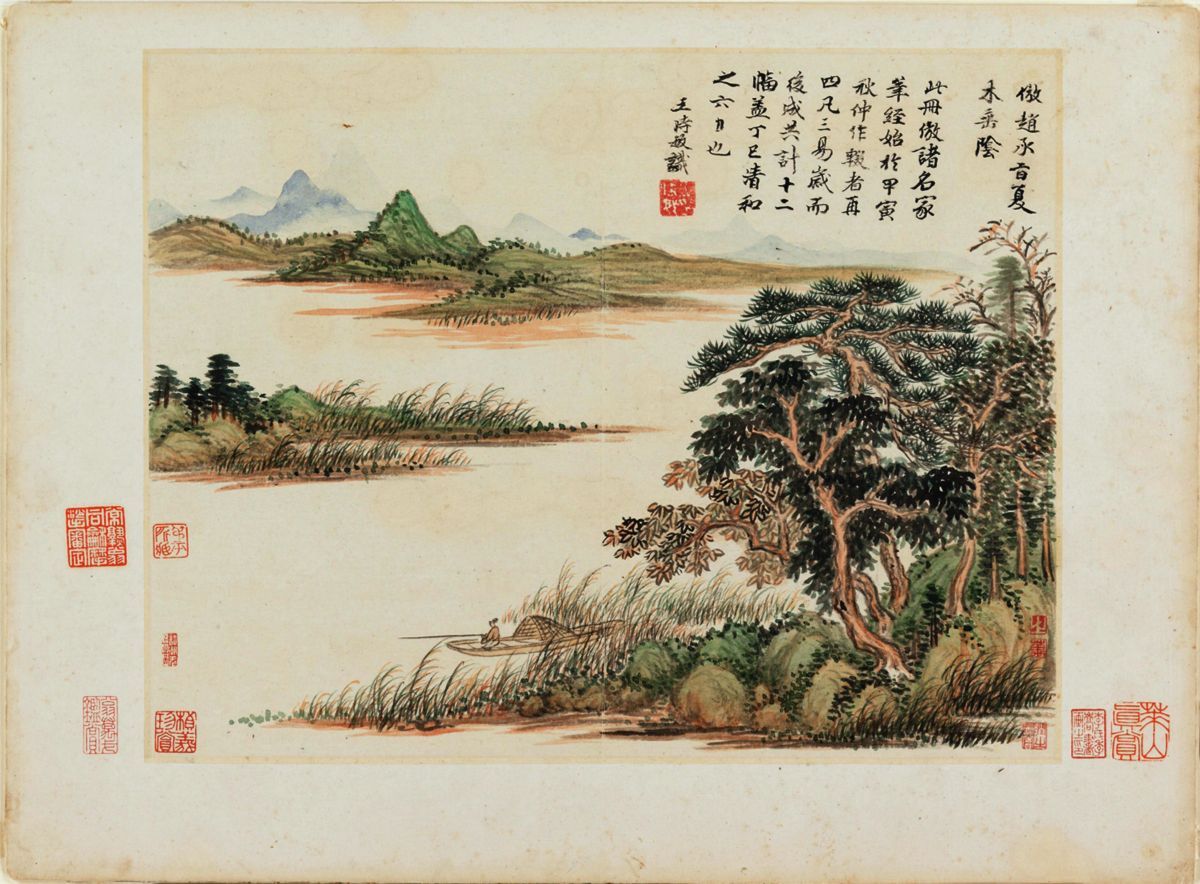 倣趙承旨夏
木垂陰
此冊倣諸名家
筆經始於甲寅
秋仲作輟者再
四凡三易歲而
後成共計十二
幅蓋丁巳清和
之六日也
王時敏識
萊山真賞